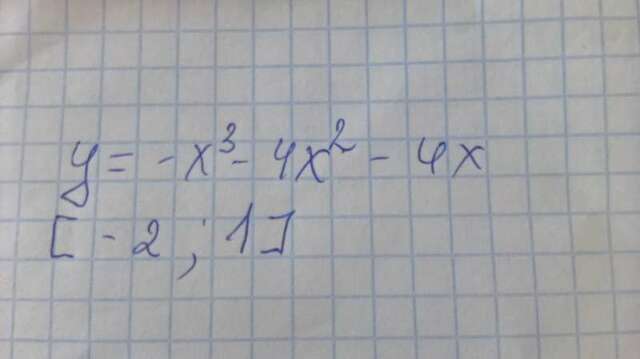 y = -x³ - 4x² - 4x
[-2; 1]